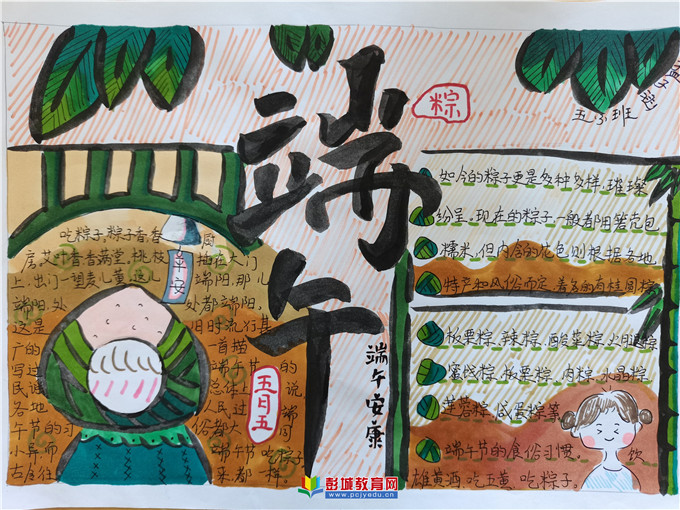 端午
粽
五(5)班
吃粽子,粽子香,香厨
房,艾叶香,香满堂,桃枝 插在大门
上,出门一望麦儿黄,这儿 端阳,那儿
端阳,处 处都端阳,
这是 旧时流行甚
广的 一首描
写过 端午节 的
民谣 总体上 说
各地 人民过 端
午节的习 俗都大 同
小异,而 端午节 吃粽子,
古今往 来,都一样。
平安
五日五
端午安康
如今的粽子更是多种多样,璀璨
纷呈。现在的粽子一般都用箬壳包
糯米,但内含的花色则根据各地
特产和风俗而定,著名的有桂圆粽
板栗粽、辣粽、酸菜粽、火腿粽
蜜饯粽、板栗粽、肉粽、水晶粽
莲蓉粽、咸蛋粽等。
端午节的食俗习惯。 饮
雄黄酒,吃五黄、吃粽子。
彭城教育网
www.pcjyedu.cn